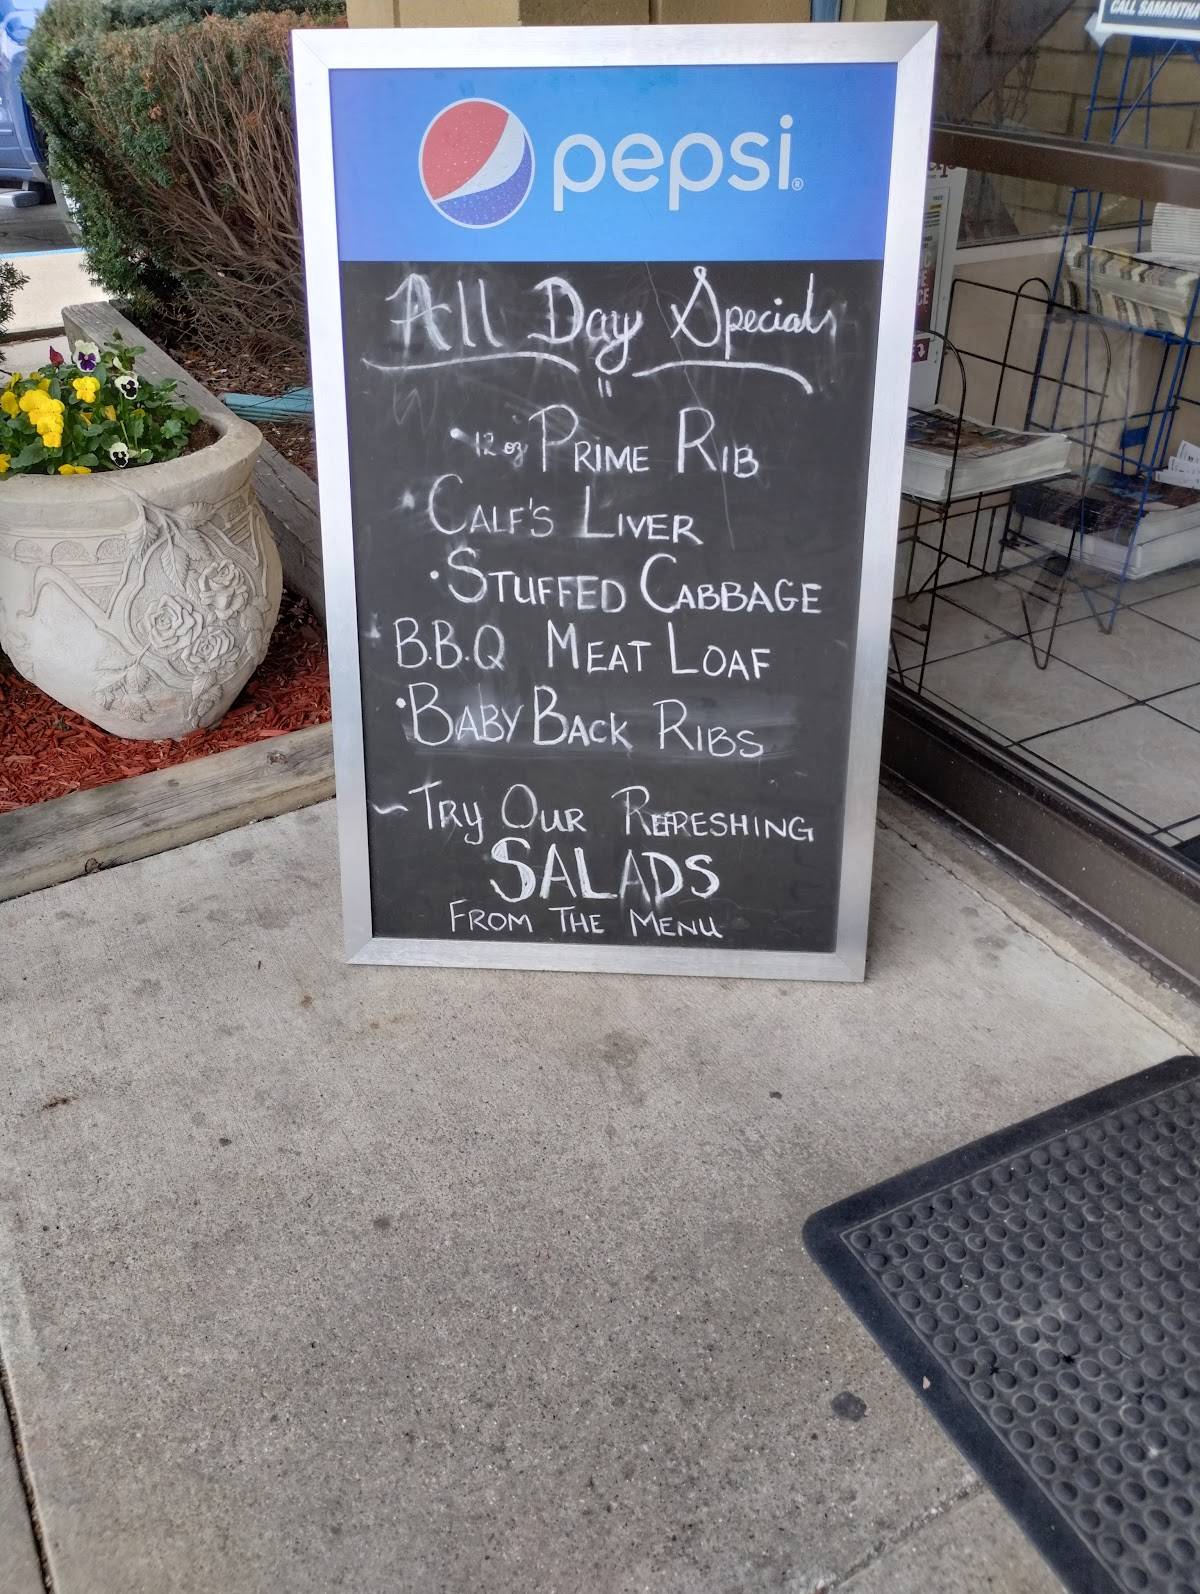 CALL SAMANTHA
pepsi®
All Day Specials
"
• 12 oz PRIME RIB
• CALF'S LIVER
• STUFFED CABBAGE
B.B.Q MEAT LOAF
• BABY BACK RIBS
~ TRY OUR REFRESHING
SALADS
FROM THE MENU